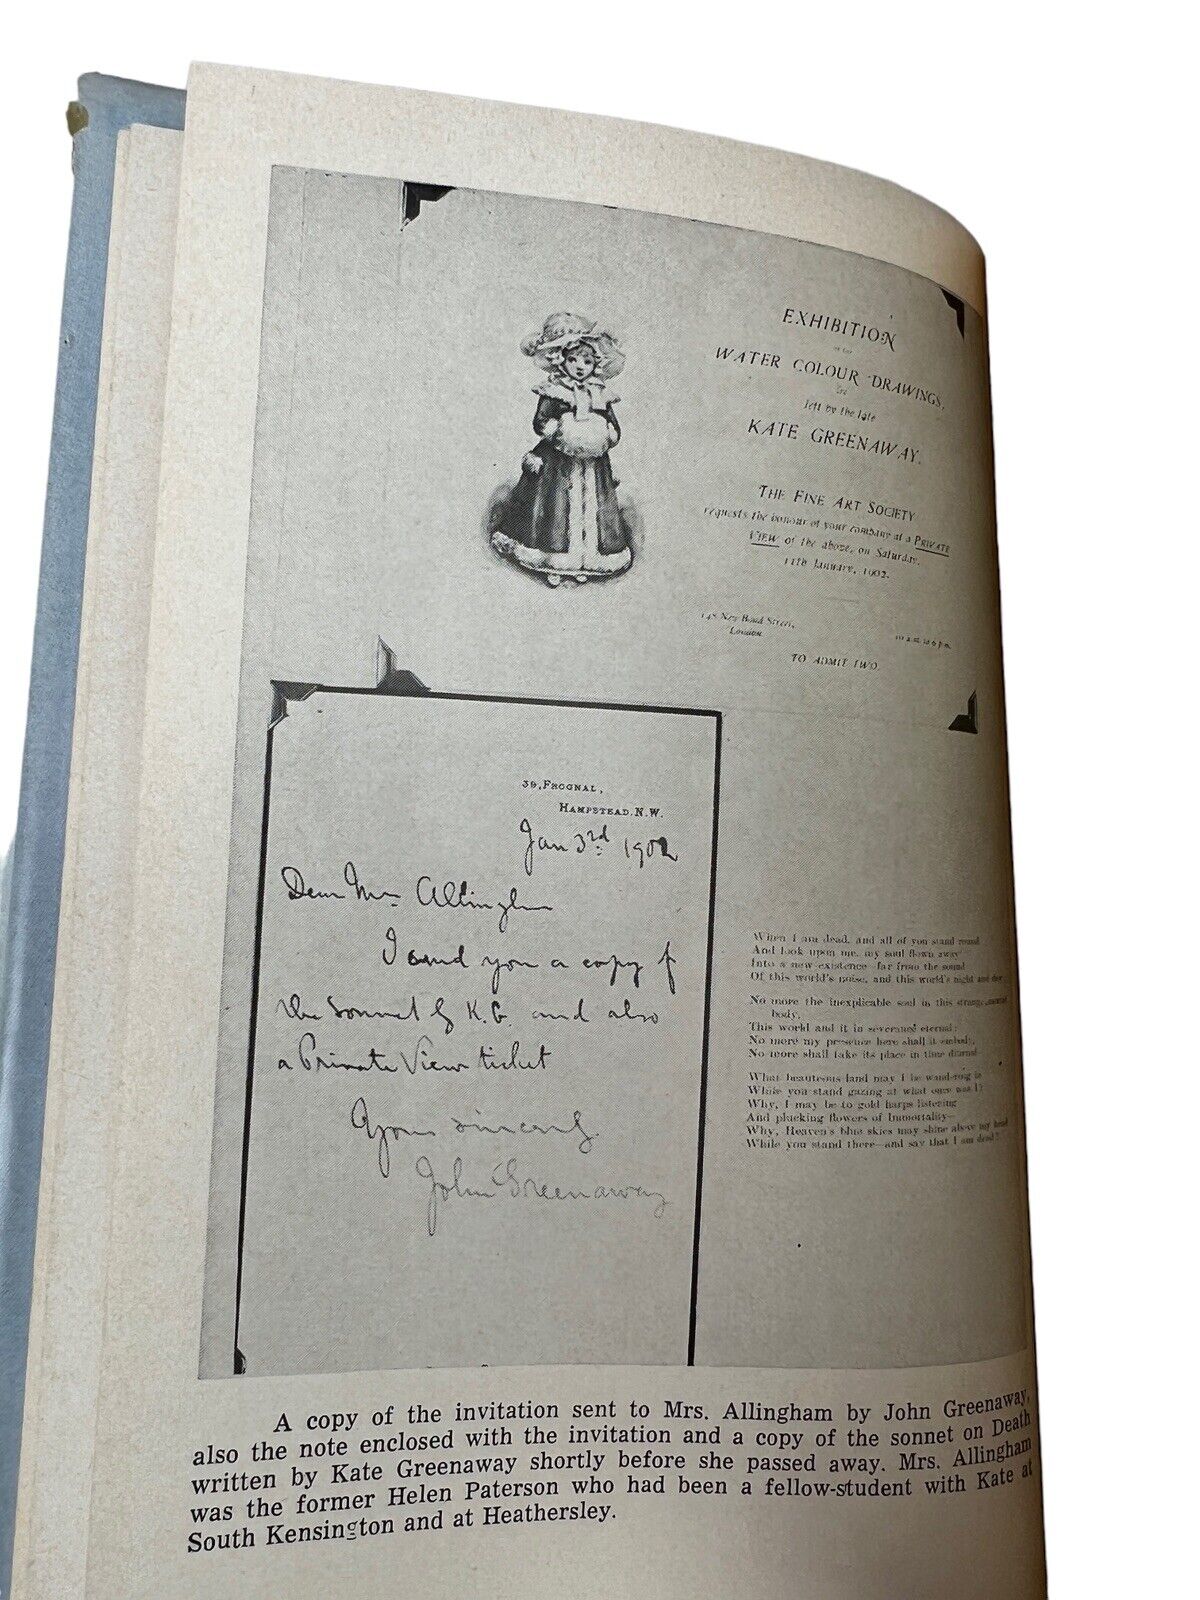 EXHIBITION
of the
WATER COLOUR DRAWINGS,
left by the late
KATE GREENAWAY.
THE FINE ART SOCIETY
requests the honour of your company at a PRIVATE
VIEW of the above, on Saturday,
11th January, 1902.
148 New Bond Street,
London
10 a.m. to 6 p.m.
TO ADMIT TWO.
39, FROGNAL,
HAMPSTEAD. N.W.
Jan 3rd 1902
Dear Mrs Allingham
I send you a copy of
the Sonnet by K.G. and also
a Private View ticket
Yours sincerely
John Greenaway
When I am dead, and all of you stand round
And look upon me, my soul flown away
Into a new existence—far from the sound
Of this world's noise, and this world's night and day
No more the inexplicable soul in this strange mortal
body,
This world and it in severance eternal:
No more my presence here shall it embody,
No more shall take its place in time diurnal
What beauteous land may I be wand'ring in
While you stand gazing at what once was I?
Why, I may be to gold harps listening
And plucking flowers of Immortality—
Why, Heaven's blue skies may shine above my head
While you stand there—and say that I am dead!
A copy of the invitation sent to Mrs. Allingham by John Greenaway,
also the note enclosed with the invitation and a copy of the sonnet on Death
written by Kate Greenaway shortly before she passed away. Mrs. Allingham
was the former Helen Paterson who had been a fellow-student with Kate at
South Kensington and at Heathersley.